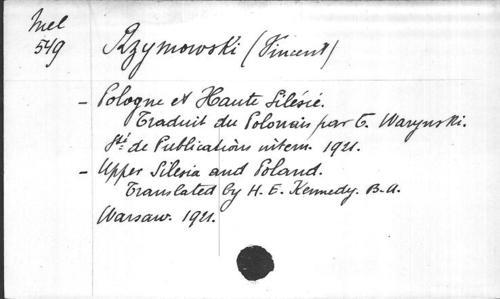 Mel
549
Rzymowski (Vincent)
- Pologne et Haute Silésie.
Traduit du Polonais par T. Warynski.
Sté de Publications intern. 1921.
- Upper Silesia and Poland.
Translated by H. E. Kennedy. B.A.
Warsaw. 1921.